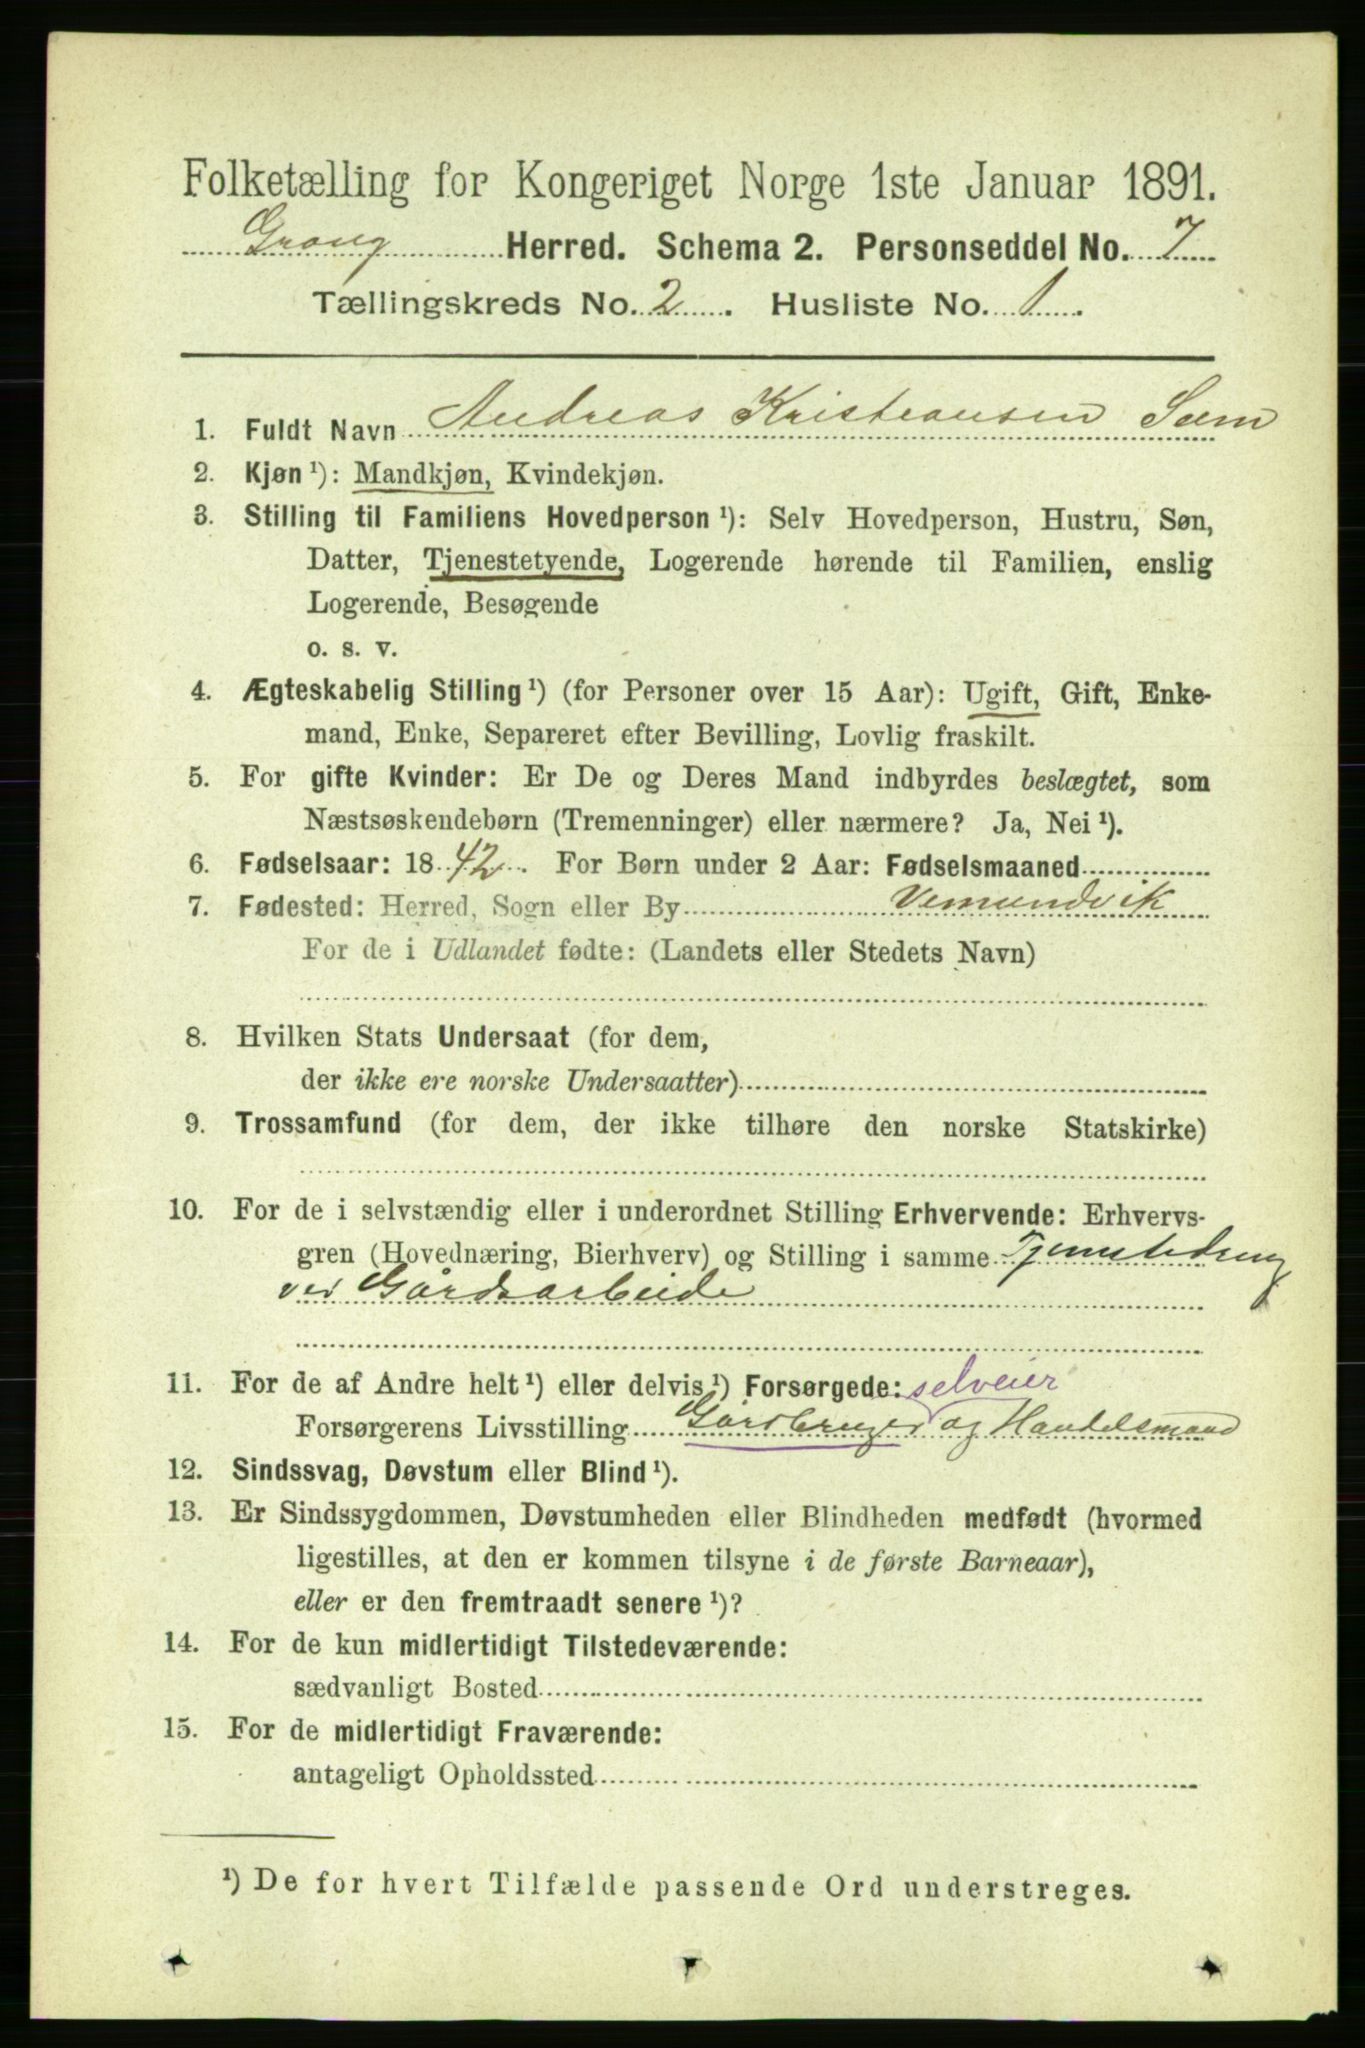 Folketælling for Kongeriget Norge 1ste Januar 1891.
Grong Herred. Schema 2. Personseddel No. 7
Tællingskreds No. 2. Husliste No. 1.
1. Fuldt Navn Andreas Kristiansen Sem
2. Kjøn ¹): Mandkjøn, Kvindekjøn.
3. Stilling til Familiens Hovedperson ¹): Selv Hovedperson, Hustru, Søn,
Datter, Tjenestetyende, Logerende hørende til Familien, enslig
Logerende, Besøgende
o. s. v.
4. Ægteskabelig Stilling ¹) (for Personer over 15 Aar): Ugift, Gift, Enke-
mand, Enke, Separeret efter Bevilling, Lovlig fraskilt.
5. For gifte Kvinder: Er De og Deres Mand indbyrdes beslægtet, som
Næstsøskendebørn (Tremenninger) eller nærmere? Ja, Nei ¹).
6. Fødselsaar: 1842. For Børn under 2 Aar: Fødselsmaaned
7. Fødested: Herred, Sogn eller By Vemundvik
For de i Udlandet fødte: (Landets eller Stedets Navn)
8. Hvilken Stats Undersaat (for dem,
der ikke ere norske Undersaatter)
9. Trossamfund (for dem, der ikke tilhøre den norske Statskirke)
10. For de i selvstændig eller i underordnet Stilling Erhvervende: Erhvervs-
gren (Hovednæring, Bierhverv) og Stilling i samme Tjenestedreng
ved Gårdsarbeide
11. For de af Andre helt ¹) eller delvis ¹) Forsørgede: selveier
Forsørgerens Livsstilling Gårdbruger og Handelsmand
12. Sindssvag, Døvstum eller Blind ¹).
13. Er Sindssygdommen, Døvstumheden eller Blindheden medfødt (hvormed
ligestilles, at den er kommen tilsyne i de første Barneaar),
eller er den fremtraadt senere ¹)?
14. For de kun midlertidigt Tilstedeværende:
sædvanligt Bosted
15. For de midlertidigt Fraværende:
antageligt Opholdssted
¹) De for hvert Tilfælde passende Ord understreges.